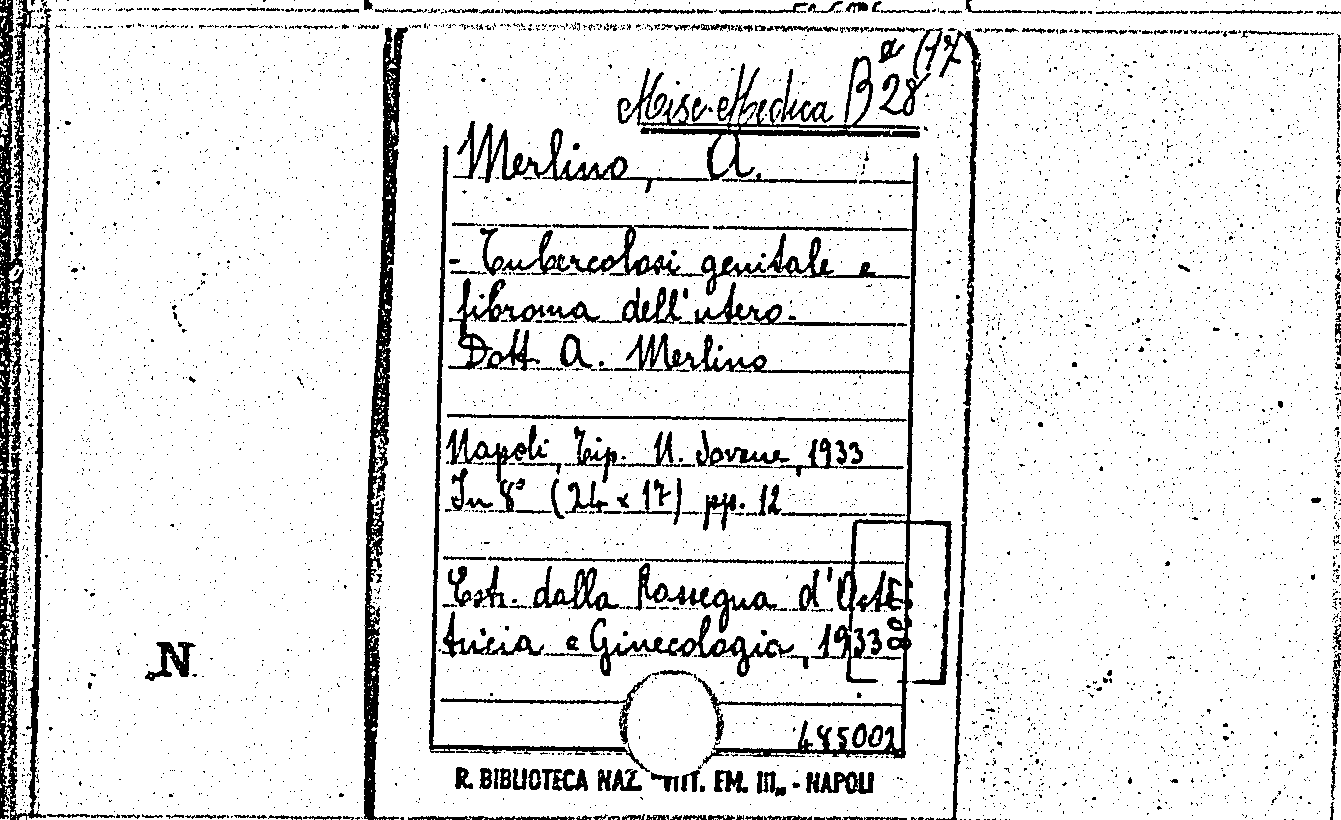 Misc. Medica B 28 a (17
Merlino, A.
- Tubercolosi genitale e
fibroma dell'utero.
Dott. A. Merlino
Napoli, Tip. N. Jovene, 1933
In 8° (24 x 17) pp. 12
Estr. dalla Rassegna d'Oste
tricia e Ginecologia, 1933
485002
R. BIBLIOTECA NAZ. VITT. EM. III„ - NAPOLI
N